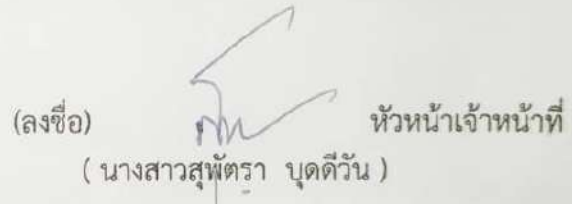 (ลงชื่อ) หัวหน้าเจ้าหน้าที่
( นางสาวสุพัตรา บุดดีวัน )